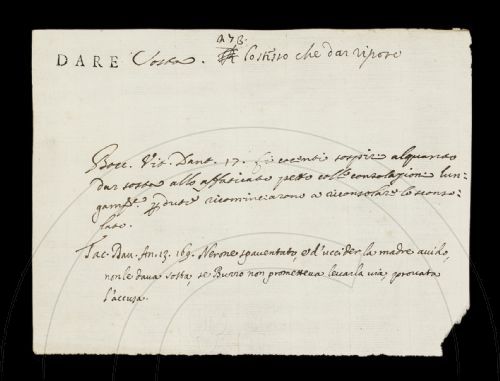 a 73.
DARE Sosta. Lo stesso che dar riposo
Bocc. Vit. Dant. 17. sospir alquanto
dar sosta allo affaticato petto colle consolazion lun-
gamte. pdute ricominciarono a riconsolare lo scons-
lato.
Tac. Dav. An. 13. 169. Nerone spaventato, e d'uccider la madre avido,
non le dava sosta, se Burro non prometteva levarla via, provata
l'accusa.